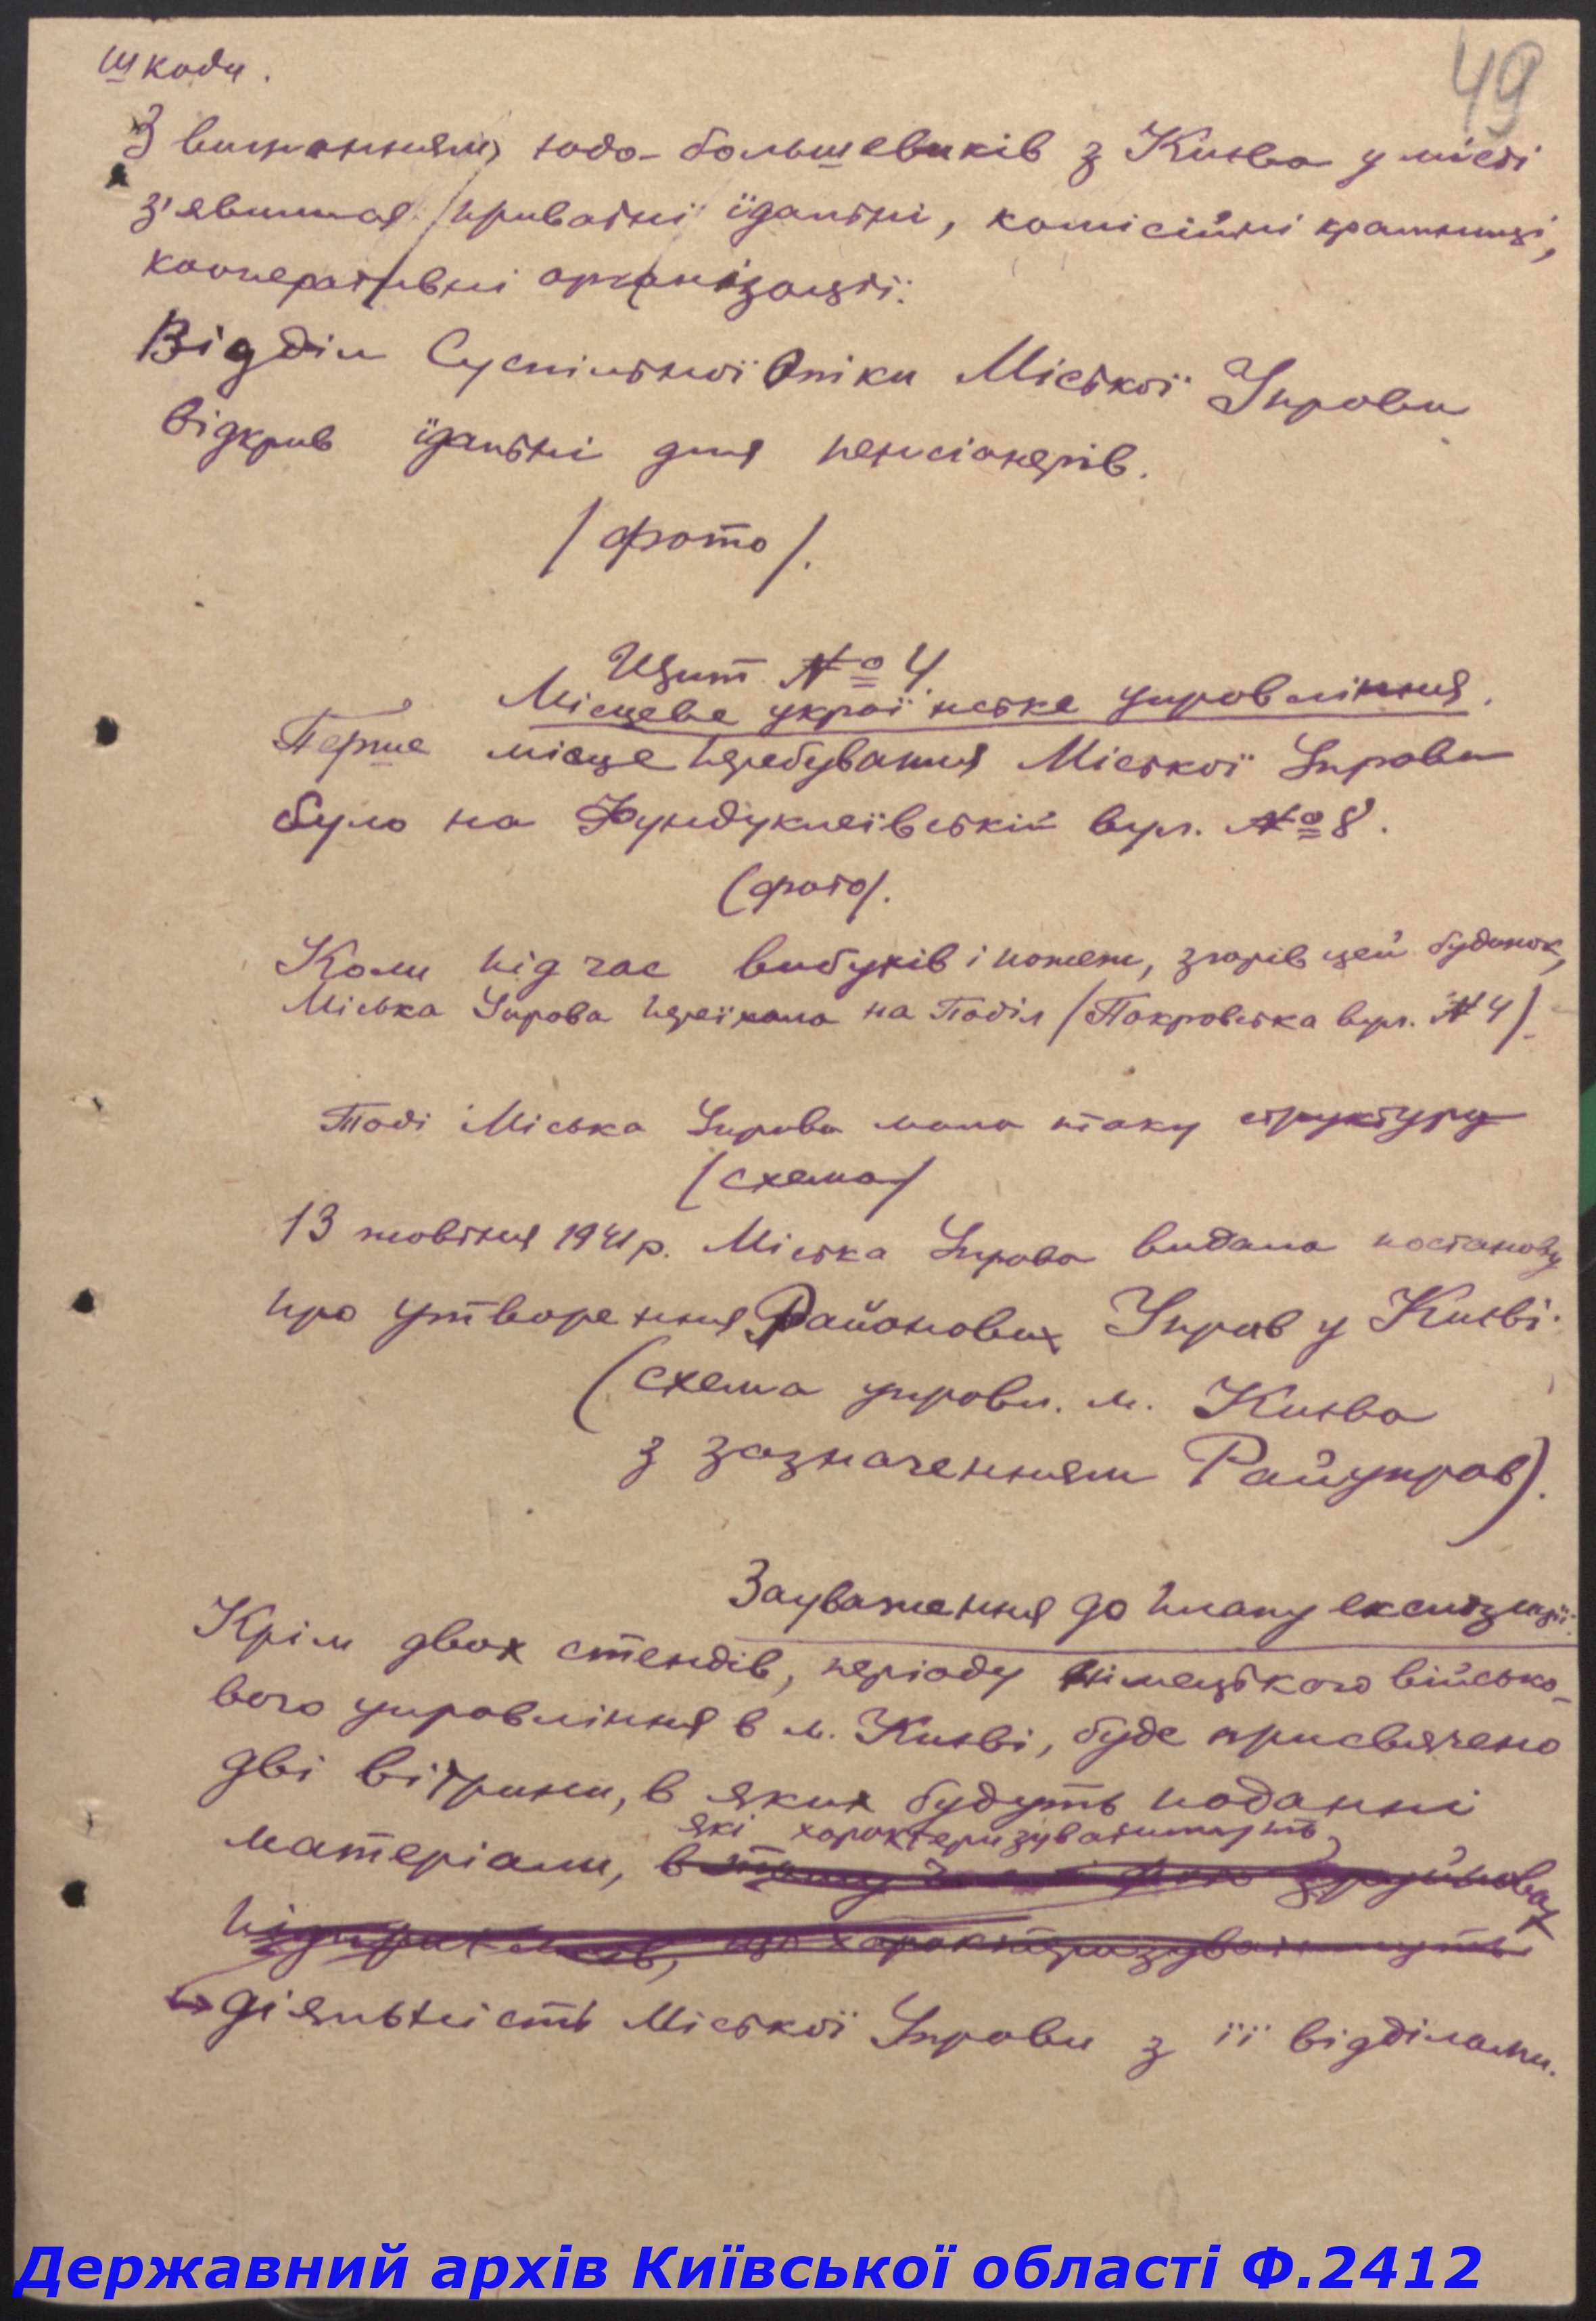 49
шкоди.
З вигнанням жидо-большевиків з Києва у місті
з'явились приватні їдальні, комісійні крамниці,
кооперативні організації.
Відділ Суспільної Опіки Міської Управи
відкрив їдальні для пенсіонерів.
/фото/.
Щит №4.
Місцеве українське управління.
Перше місце перебування Міської Управи
було на Фундуклеївській вул. №8.
(фото).
Коли під час вибухів і пожеж, згорів цей будинок,
Міська Управа переїхала на Поділ /Покровська вул. №4/.
Тоді Міська Управа мала таку структуру
/схема/
13 жовтня 1941 р. Міська Управа видала постанову
про утворення Районових Управ у Києві.
(схема управл. м. Києва
з зазначенням Райуправ).
Зауваження до плану експозиції.
Крім двох стендів, періоду німецького військо-
вого управління в м. Києві, буде присвячено
дві вітрини, в яких будуть поданні
які характеризуватимуть
матеріали, в зруйнованих
підприємств, що характеризуватимуть
діяльність Міської Управи з її відділами.
Державний архів Київської області Ф.2412